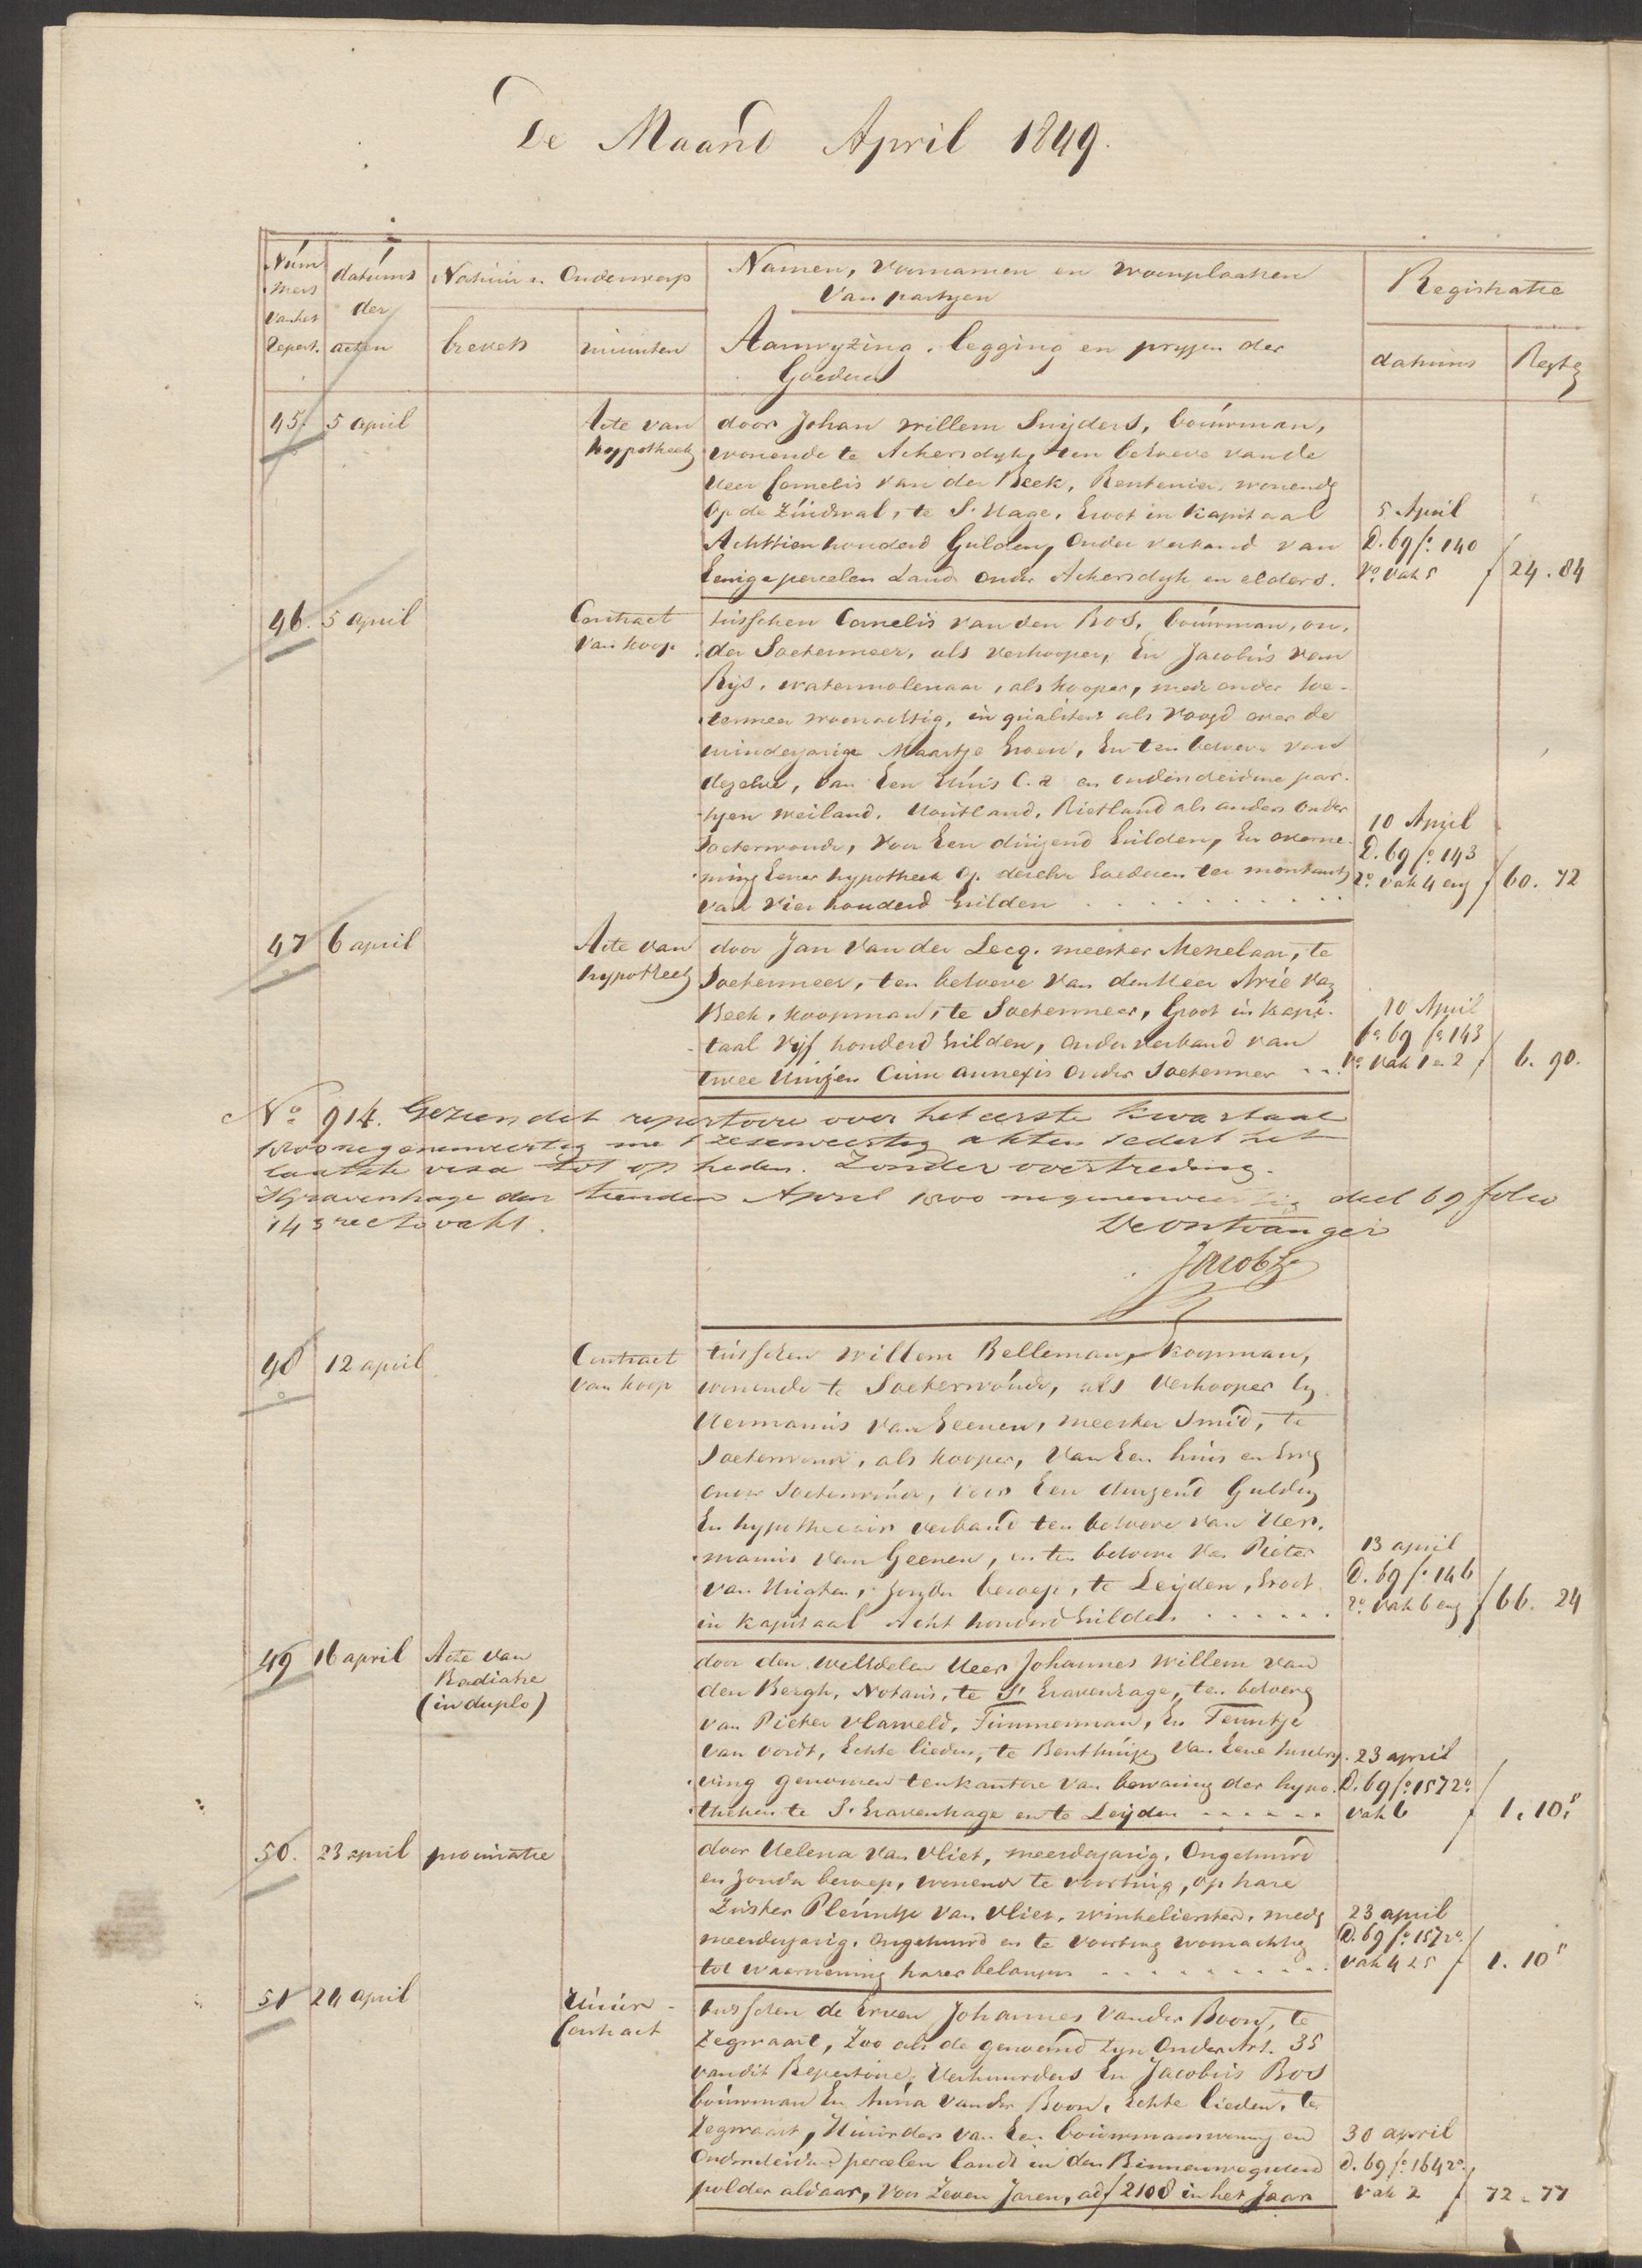 De Maand April 1849.
Num
mers
van het
Repert.
datums
der
acten
Natuur en Onderwerp
brevets
minuten
Namen, voornamen en woonplaatsen
van partyen
Aanwyzing, legging en pryzen der
Goederen
Registratie
datums
Regtn
45. 5 april
Acte van
hypotheek
door Johan Willem Snijders, bouwman,
wonende te Ackersdyk, ten behoeve van de
Heer Cornelis van der Beek, Rentenier, wonende
op de Zuidwal, te S. Hage, Groot in kapitaal
Achttien honderd Gulden, onder verband van
Eenige percelen Land onder Ackersdyk en elders.
5 April
D. 69 fo. 140
Vo. vak 5
f 24. 84
46. 5 april
Contract
van koop
tusschen Cornelis van den Bos, bouwman, on-
der Soetermeer, als verkooper, En Jacobus van
Rijs, watermolenaar, als kooper, mede onder Soe-
termeer woonachtig, in qualiteit als voogd over de
minderjarige Maartje Groen, En ten behoeve van
dezelve, van Een Huis C.a en onderscheidene par-
tyen weiland, Houtland, Rietland als anders onder
Soeterwoude, voor Een duizend Gulden, En overne-
ming Eener hypotheek op dezelve Goederen ter montant
van vier honderd Gulden
10 April
D. 69 fo. 143
ro. vak 4 env
f 60. 72
47 6 april
Acte van
hypotheek
door Jan van der Lecq, meester Metselaar, te
Soetermeer, ten behoeve van den Heer Arie van
Beek, koopman, te Soetermeer, Groot in kapi-
taal vijf honderd Gulden, onder verband van
twee Huizen Cum annexis onder Soetermeer
10 April
Do. 69 fo. 143
Vo. vak 1 en 2
f 6. 90.
No. 914. Gezien dit repertoire over het eerste kwartaal
1800 negenenveertig met zesenveertig akten sedert het
laatste visa tot op heden. Zonder overtreding.
S'Gravenhage den tienden April 1800 negenenveertig deel 69 folio
143 recto vak 1.
De ontvanger
Jacobs
48 12 april
Contract
van koop
tusschen Willem Belleman, Koopman,
wonende te Soeterwoude, als Verkooper En
Hermanus van Geenen, meester Smid, te
Soeterwoude, als kooper, van Een huis en Erve
onder Soeterwoude, voor Een duizend Gulden
En hypothecair verband ten behoeve van Her-
manus van Geenen, en ten behoeve van Pieter
van Huigten, zonder beroep, te Leijden, Groot
in kapitaal Acht honderd Gulden
13 april
D. 69 fo. 146
ro. vak 6 env
f 66. 24
49 16 april
Acte van
Radiatie
(in duplo)
door den WelEdelen Heer Johannes Willem van
den Bergh, Notaris, te S' Gravenhage, ten behoeve
van Pieter Vlasveld, Timmerman, En Teuntje
van voort, Echte lieden, te Benthuizen van Eene inschry-
ving genomen ten kantore van bewaring der hypo-
theken te S. Gravenhage en te Leijden
23 april
D. 69 fo. 157 2o.
vak 6
f 1. 10.5
50. 23 april
procuratie
door Helena van Vliet, meerderjarig, Ongehuwd
en zonder beroep, wonende te Voorburg, op hare
Zuster Pleuntje van Vliet, winkelierster, mede
meerderjarig, Ongehuwd en te Voorburg woonachtig
tot waarneming harer belangen
23 april
D. 69 fo. 157 2o.
vak 4 25
f 1. 10 5
51 24 april
Huur-
Contract
tusschen de Erven Johannes van der Boon, te
Zegwaart, Zoo als de genoemd zyn Onder Art. 35
van dit Repertoire, Verhuurders En Jacobus Bos
bouwman En Anna van der Boon, Echte lieden, te
Zegwaart, Huurders van Een bouwmanswoning en
Onderscheidene percelen Land in den Binnenwegschen
polder aldaar, voor Zeven Jaren, ad f 2108 in het Jaar
30 april
D. 69 fo. 164 2o.
vak 2
f 72. 77